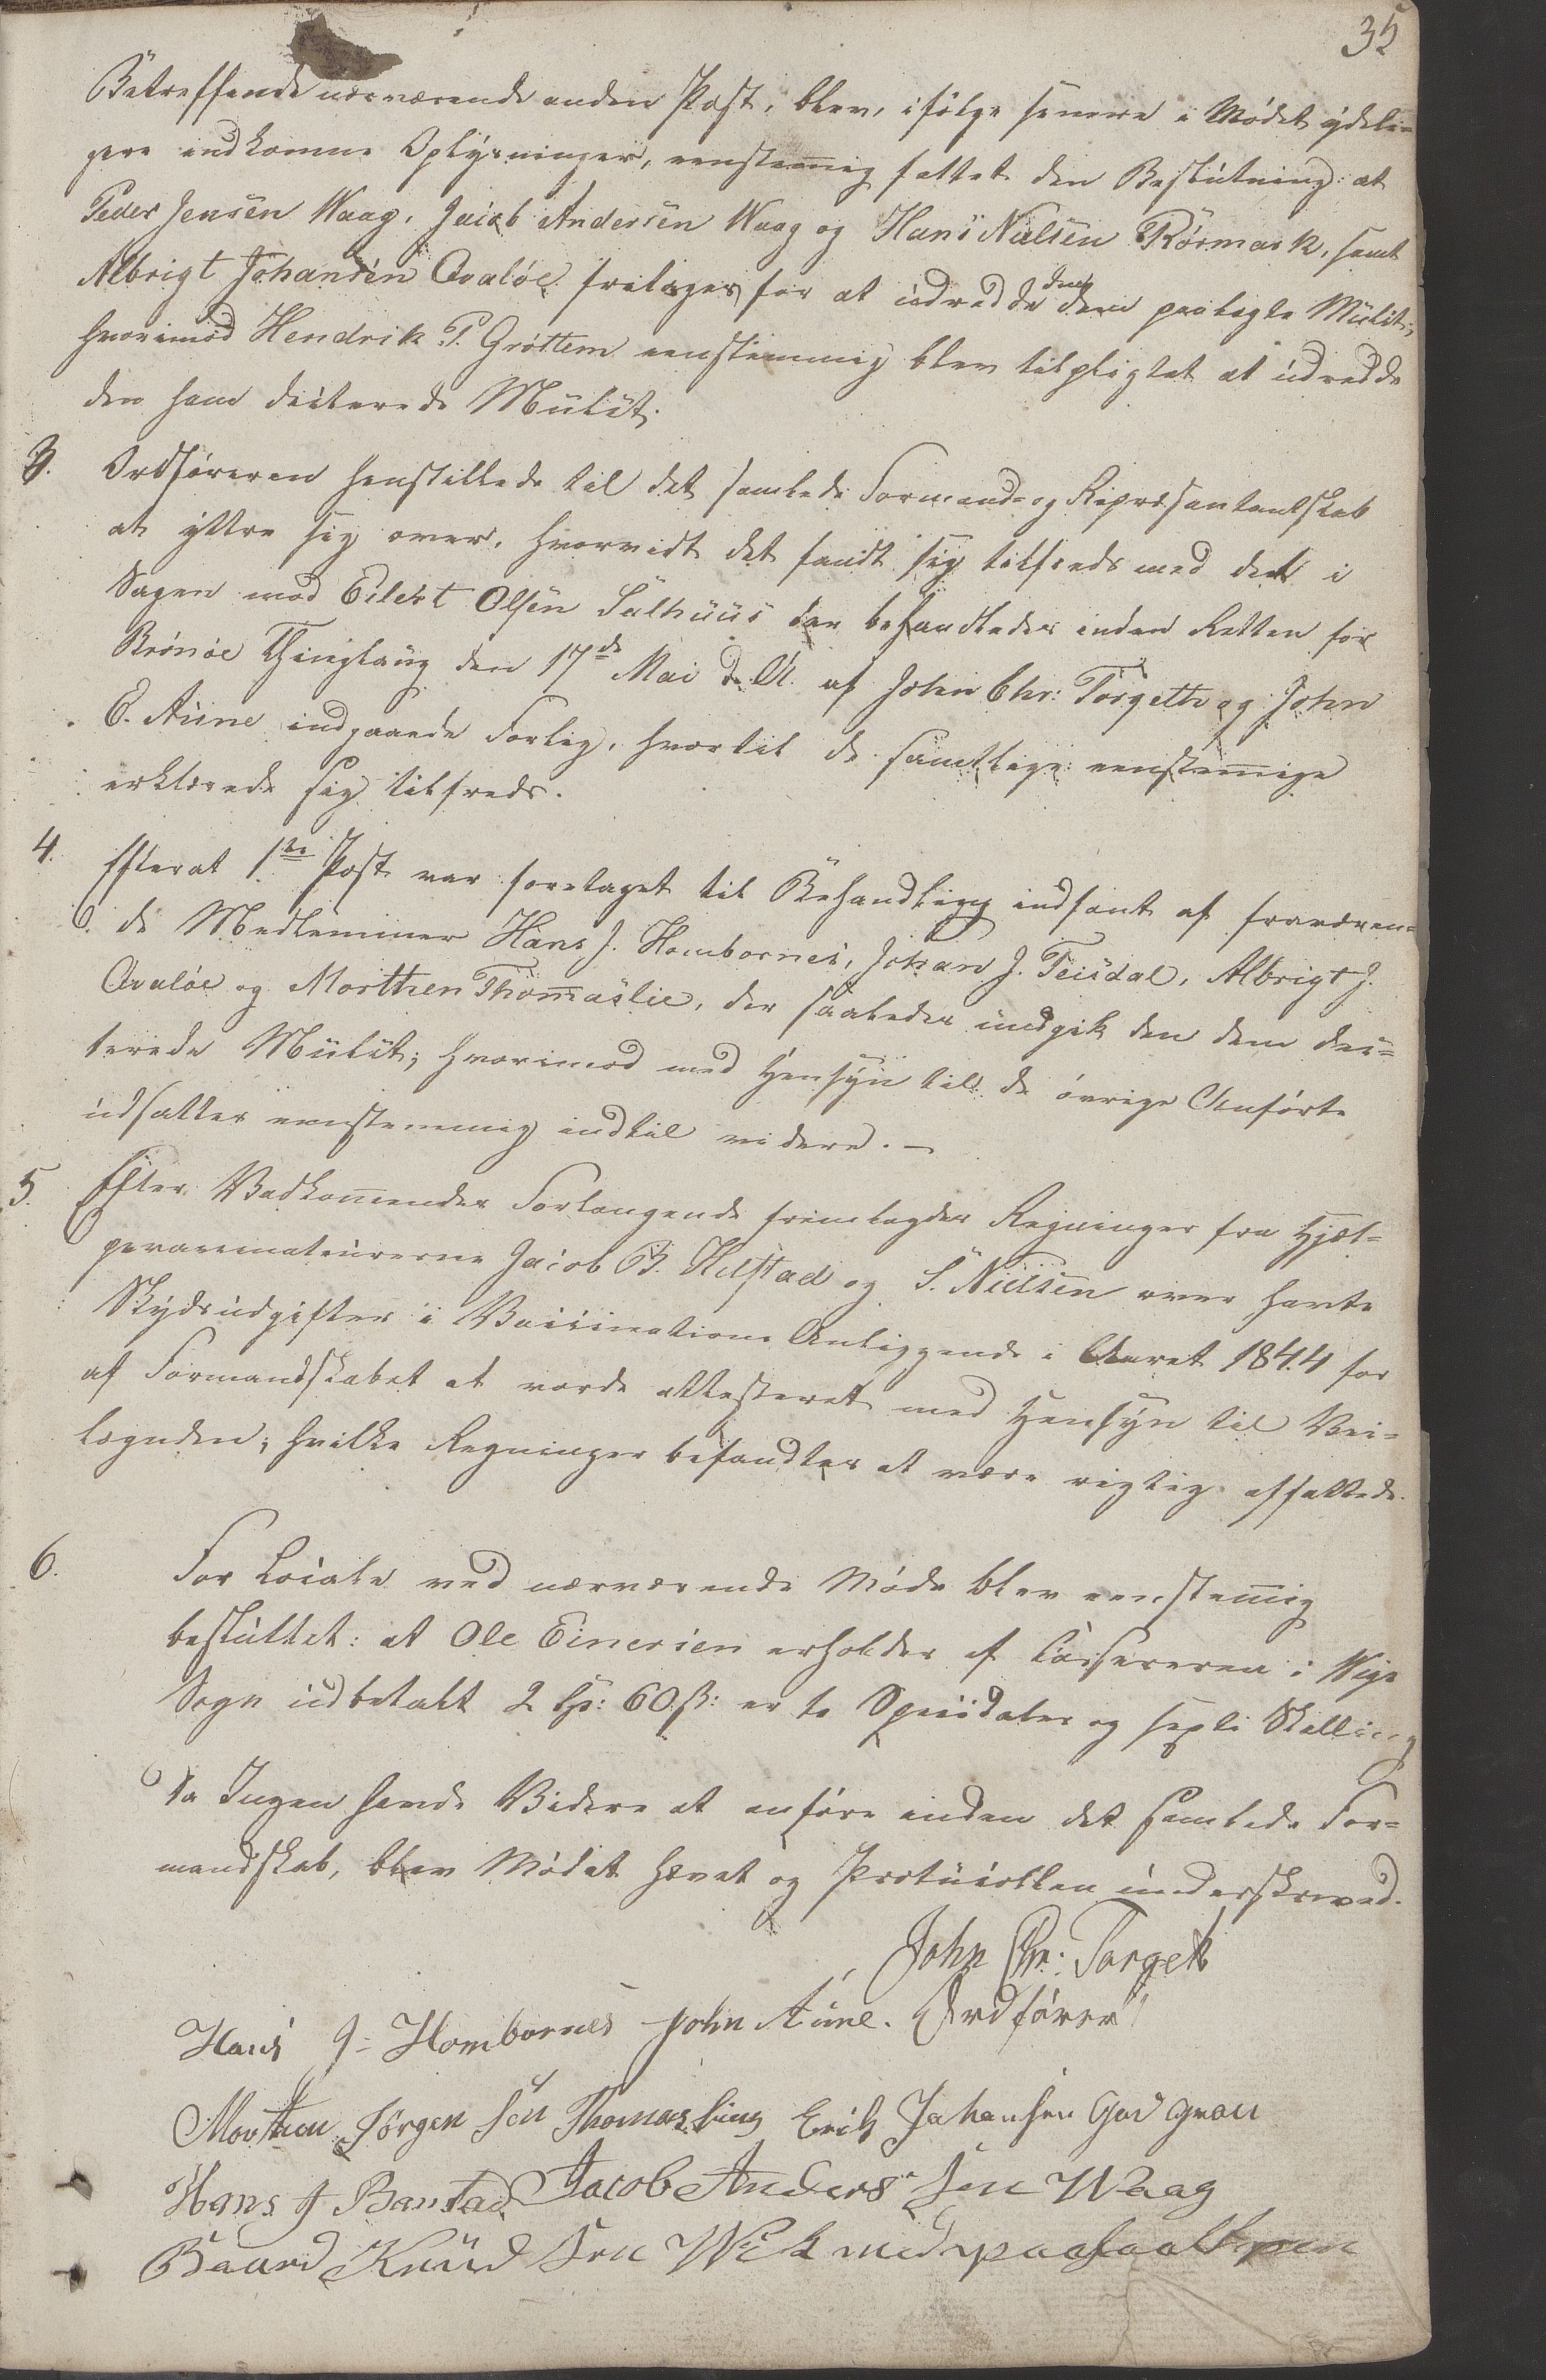 35
Betreffende nærværende anden Post, blev, ifølge senere i Mødet ydeli=
gere indkomne Oplysninger, eenstemig fattet den Beslutning: at
Peder Jensen Waag, Jacob Andersen Waag og Hans Nielsen Rørmark, samt
Albrigt Johansen Qvaløe fritages for at udredde den dem paalagte Mulct;
hvorimod Hendrik P. Grøttem eenstemmig blev tilpligtet at udredde
den ham dicterede Mulct.
3. Ordføreren henstillede til det samlede Formands- og Repræsentantskab
at yttre sig over, hvorvidt det fandt sig tilfreds med det i
Sagen mod Eilert Olsen Salhuus der behandledes inden Retten for
Brønøe Thinglaug den 17de Mai d. A. af John Chr: Torgett og John
E. Aune indgaaede Forlig, hvortil de samtlige eenstemige
erklærede sig tilfreds.
4. Efterat 1ste Post var foretaget til Behandling indfant af fraværen=
de Medlemmer Hans J. Hombornes, Johan J. Teisdal, Albrigt J.
Qvaløe og Morthen Thommaslie, der saaledes undgik den dem dic=
terede Mulct; hvorimod med Hensyn til de øvrige Anførte
udsattes eenstemmig indtil videre. —
5. Efter Vedkommendes Forlangende fremlagdes Regninger fra Hjæl=
pevaccinateurerne Jacob B. Hilstad og S. Nielsen over havte
Skydsudgifter i Vaccinations Anliggende i Aaret 1844 for
af Formandskabet at vorde attesteret med Hensyn til Vei=
længden; hvilke Regninger befandtes at være rigtig affattede.
6. For Locale ved nærværende Møde blev eenstemig
besluttet: at Ole Einersen erholder af Cassereren i Wige
Sogn udbetalt 2 Sp: 60 ß: er to Speciedaler og sexti Skilling
Da Ingen havde Videre at anføre inden det samlede For=
mandskab, blev Mødet hævet og Protocollen underskreved.
John Chr: Torgett
Hans J= Hombornes John Aune. Ordfører
Morthen Jørgen sen Thomaslien Erik Johansen
Hans J Bamstad Jacob Anders sen Waag
Baard Knud sen Wik med paaholt pen